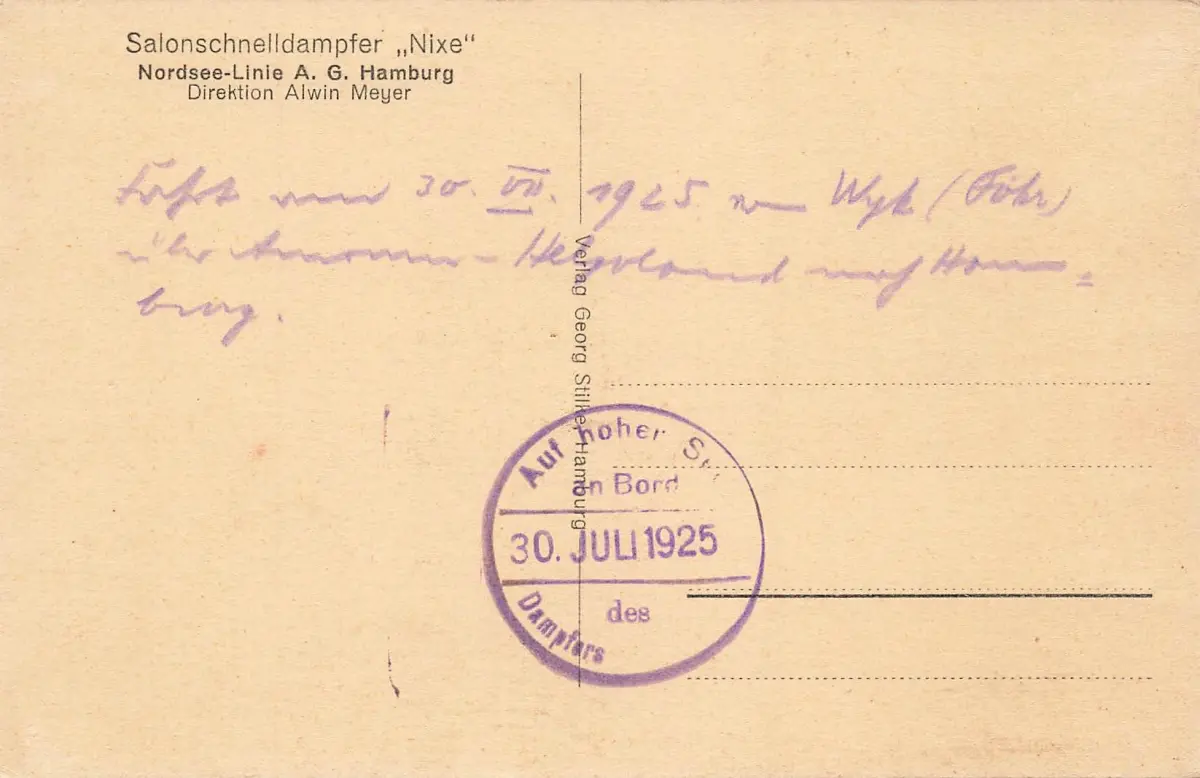 Salonschnelldampfer „Nixe“
Nordsee-Linie A. G. Hamburg
Direktion Alwin Meyer
Fahrt am 30. VII. 1925 von Wyk (Föhr)
über Amrum - Helgoland nach Ham-
burg.
Verlag Georg Stilke, Hamburg
Auf hoher
an Bord
30. JULI 1925
des
Dampfers